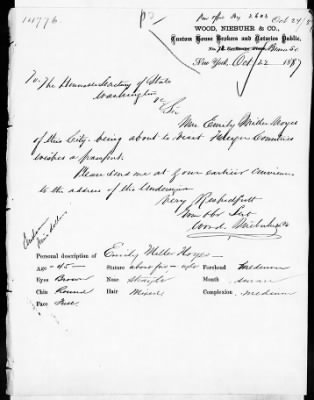 14776
Oct 24/87
WOOD, NIEBUHR & CO.,
Custom House Brokers and Notaries Public,
New York, Oct 22 1887
To The Honorable Secretary of State
Washington
Sir
Mrs Emily Miller Noyes
of this City being about to visit Foreign Countries
wishes a passport.
Please send me at your earliest convenience
to the address of the Undersigned
Very Respectfully
Your obt Svt
Wood, Niebuhr & Co
Personal description of Emily Miller Noyes
Age - 45 - Stature Forehead Medium
Eyes Brown Nose Straight Mouth
Chin Round Hair Mixed Complexion Medium
Face